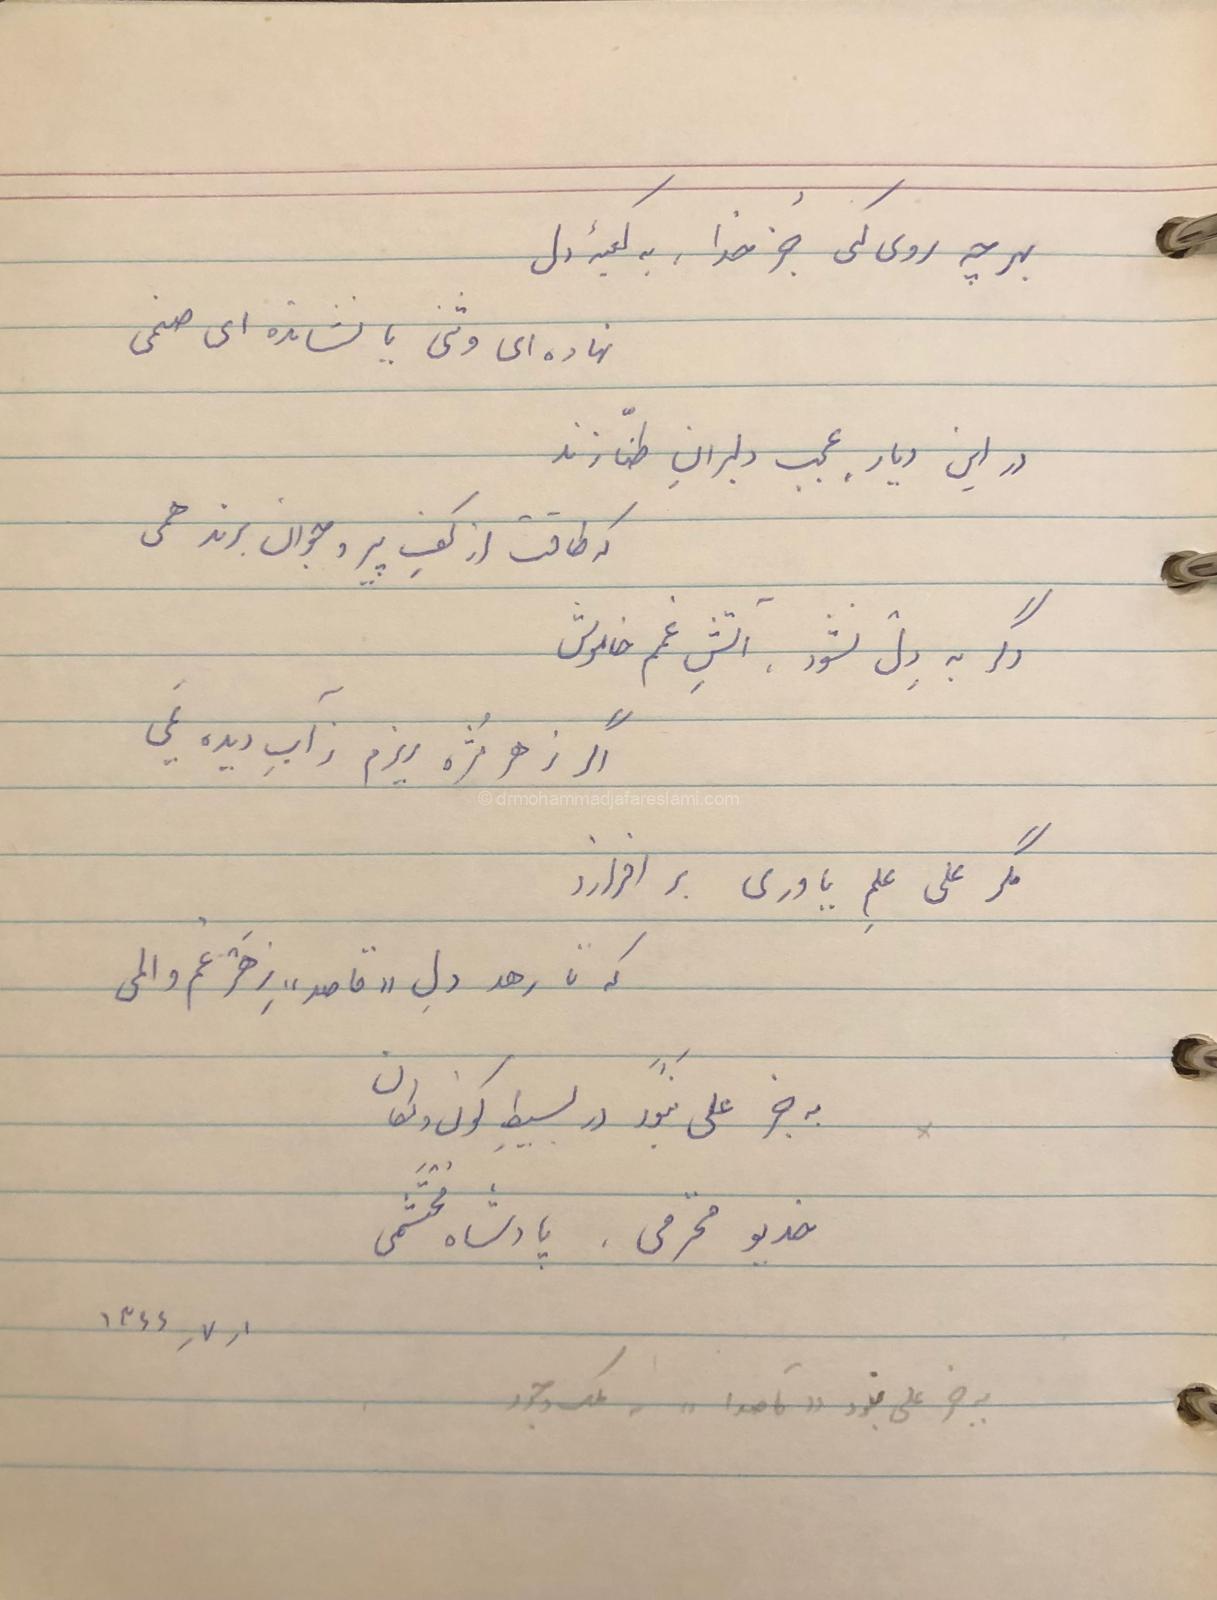 بهر چه روی کنی جُز خدا، به کعبهٔ دل
نهاده ای وثنی یا نشانده ای صنمی
در این دیار، عجب دلبرانِ طنّازند
که طاقت از کفِ پیر و جوان برند همی
دگر به دِل نشود، آتشِ غمم خاموش
اگر ز هر مُژه ریزم ز آبِ دیده یَمی
© drmohammadjafareslami.com
مگر علی علمِ یاوری بر افرازد
که تا رهد دلِ «قاصد» زِ هَر غم و المی
به جز علی نَبُوَد در بسیطِ کون و مکان
خدیو محترمی، پادشاه مُحْتَشَمی
۱ر۷ر۱۳۶۶
به جز علی نبود «قاصدا» به ملک وجود